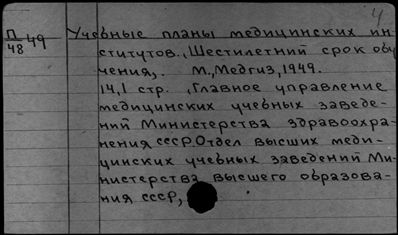 4
П/48 49 Учебные планы медицинских ин-
ститутов., Шестилетний срок обу
чения,. М., Медгиз, 1949.
14,1 стр. ,Главное управление
медицинских учебных заведе-
ний Министерства здравоохра-
нения СССР. Отдел высших меди-
цинских учебных заведений Ми-
нистерства высшего образова-
ния СССР,